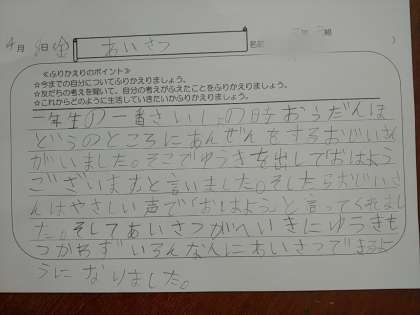 4月 8日(金) あいさつ 名前
≪ふりかえりのポイント≫
☆今までの自分についてふりかえりましょう。
☆友だちの考えを聞いて、自分の考えがふえたことをふりかえりましょう。
☆これからどのように生活していきたいかふりかえりましょう。
一年生の一番さいしょの時おうだんほ
どうのところにあんぜんをするおじいさん
がいました。そこでゆうきを出して「おはよう
ございますと言いました。そしたらおじいさ
んはやさしい声で「おはよう」と言ってくれまし
た。そしてあいさつがへいきにゆうきも
つかわずいろんな人にあいさつできるよ
うになりました。